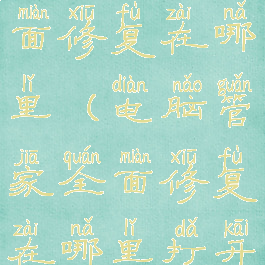 miàn xiū fù zài nǎ
面修复在哪
lǐ diàn nǎo guǎn
里（电脑管
jiā quán miàn xiū fù
家全面修复
zài nǎ lǐ dǎ kāi
在哪里打开